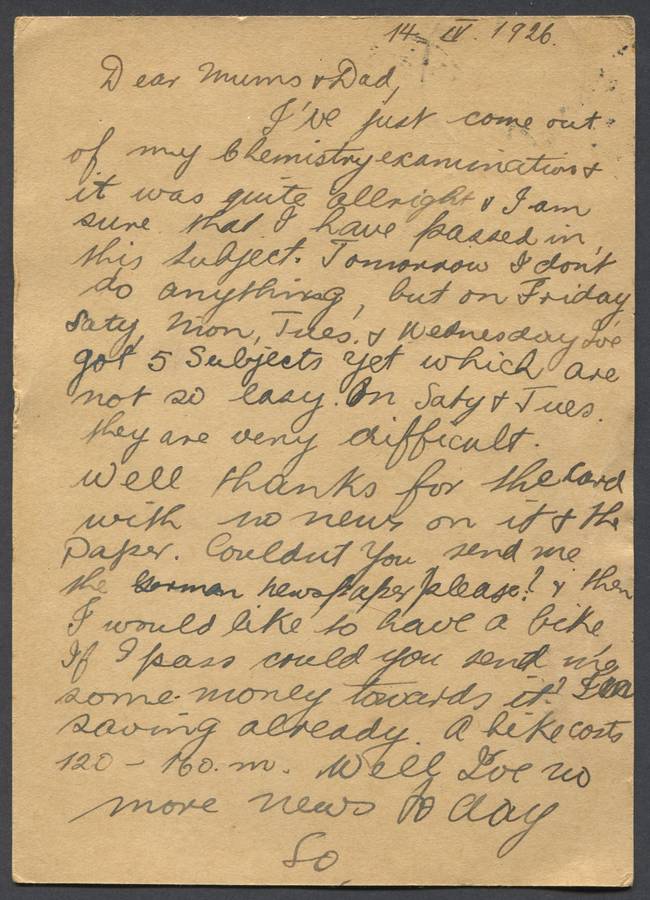 14. IV. 1926.
Dear Mums & Dad,
I've just come out
of my Chemistry examination &
it was quite allright & I am
sure that I have passed in
this subject. Tomorrow I don't
do anything, but on Friday
Saty, Mon, Tues. & Wednesday I've
got 5 Subjects yet which are
not so easy. On Saty & Tues.
they are very difficult.
Well thanks for the card
with no news on it & the
paper. Couldnt you send me
the German newspaper please? & then
I would like to have a bike
If I pass could you send me
some money towards it? I'm
saving already. A bike costs
120 - 160. m. Well I've no
more news to day
So,